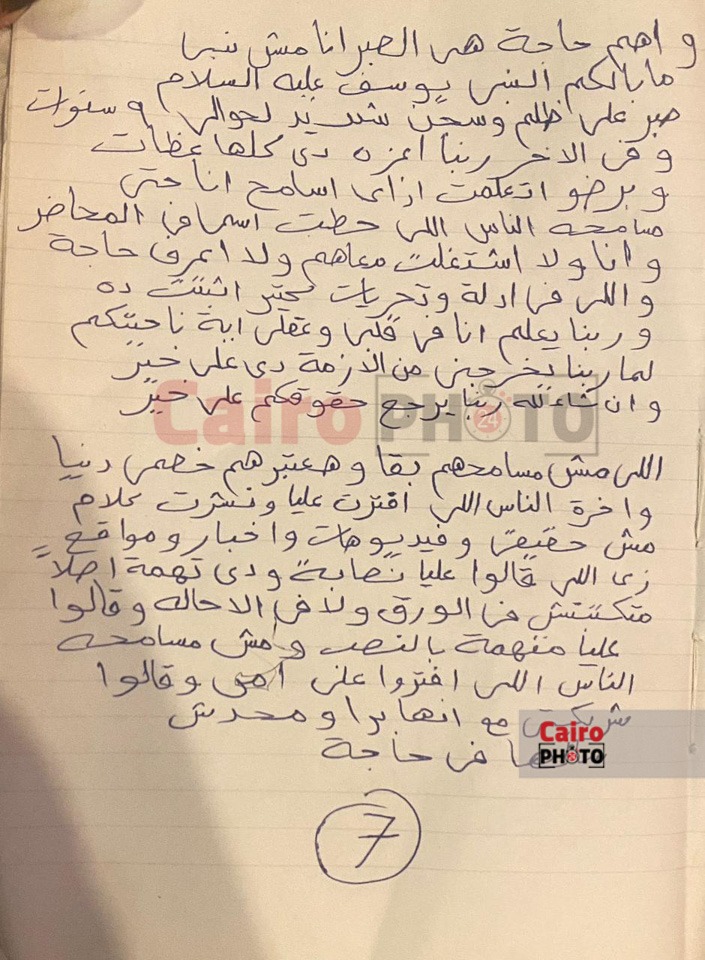 و اهم حاجة هى الصبر انا مش نبيا
ما بالكم النبى يوسف عليه السلام
صبر على ظلم وسجن شديد لحوالى ٩ سنوات
و فى الاخر ربنا اعزه دى كلها عظات
و برضو اتعلمت ازاى اسامح انا حتى
مسامحه الناس اللى حطت اسما فى المحاضر
و انا ولا اشتغلت معاهم ولا اعرف حاجة
و اللى فى ادلة وتحريات اثبتت ده
و ربنا يعلم انا فى قلبى وعقلى اية ناحيتكم
لما ربنا يخرجنى من الازمة دى على خير
و ان شاء لله ربنا يرجع حقوقكم على خير
Cairo PHOTO
24
اللى مش مسامحهم بقا و هعتبرهم خصمى دنيا
و اخرة الناس اللى افترت عليا و نشرت كلام
مش حقيقى و فيديوهات و اخبار و مواقع
زى اللى قالوا عليا نصابة ودى تهمة اصلاً
متكتبتش فى الورق ولا فى الاحاله و قالوا
عليا متهمة بالنصب و مش مسامحه
الناس اللى افتروا على امى و قالوا
مع انها برا و محدش
فى حاجة
Cairo
PHOTO
7